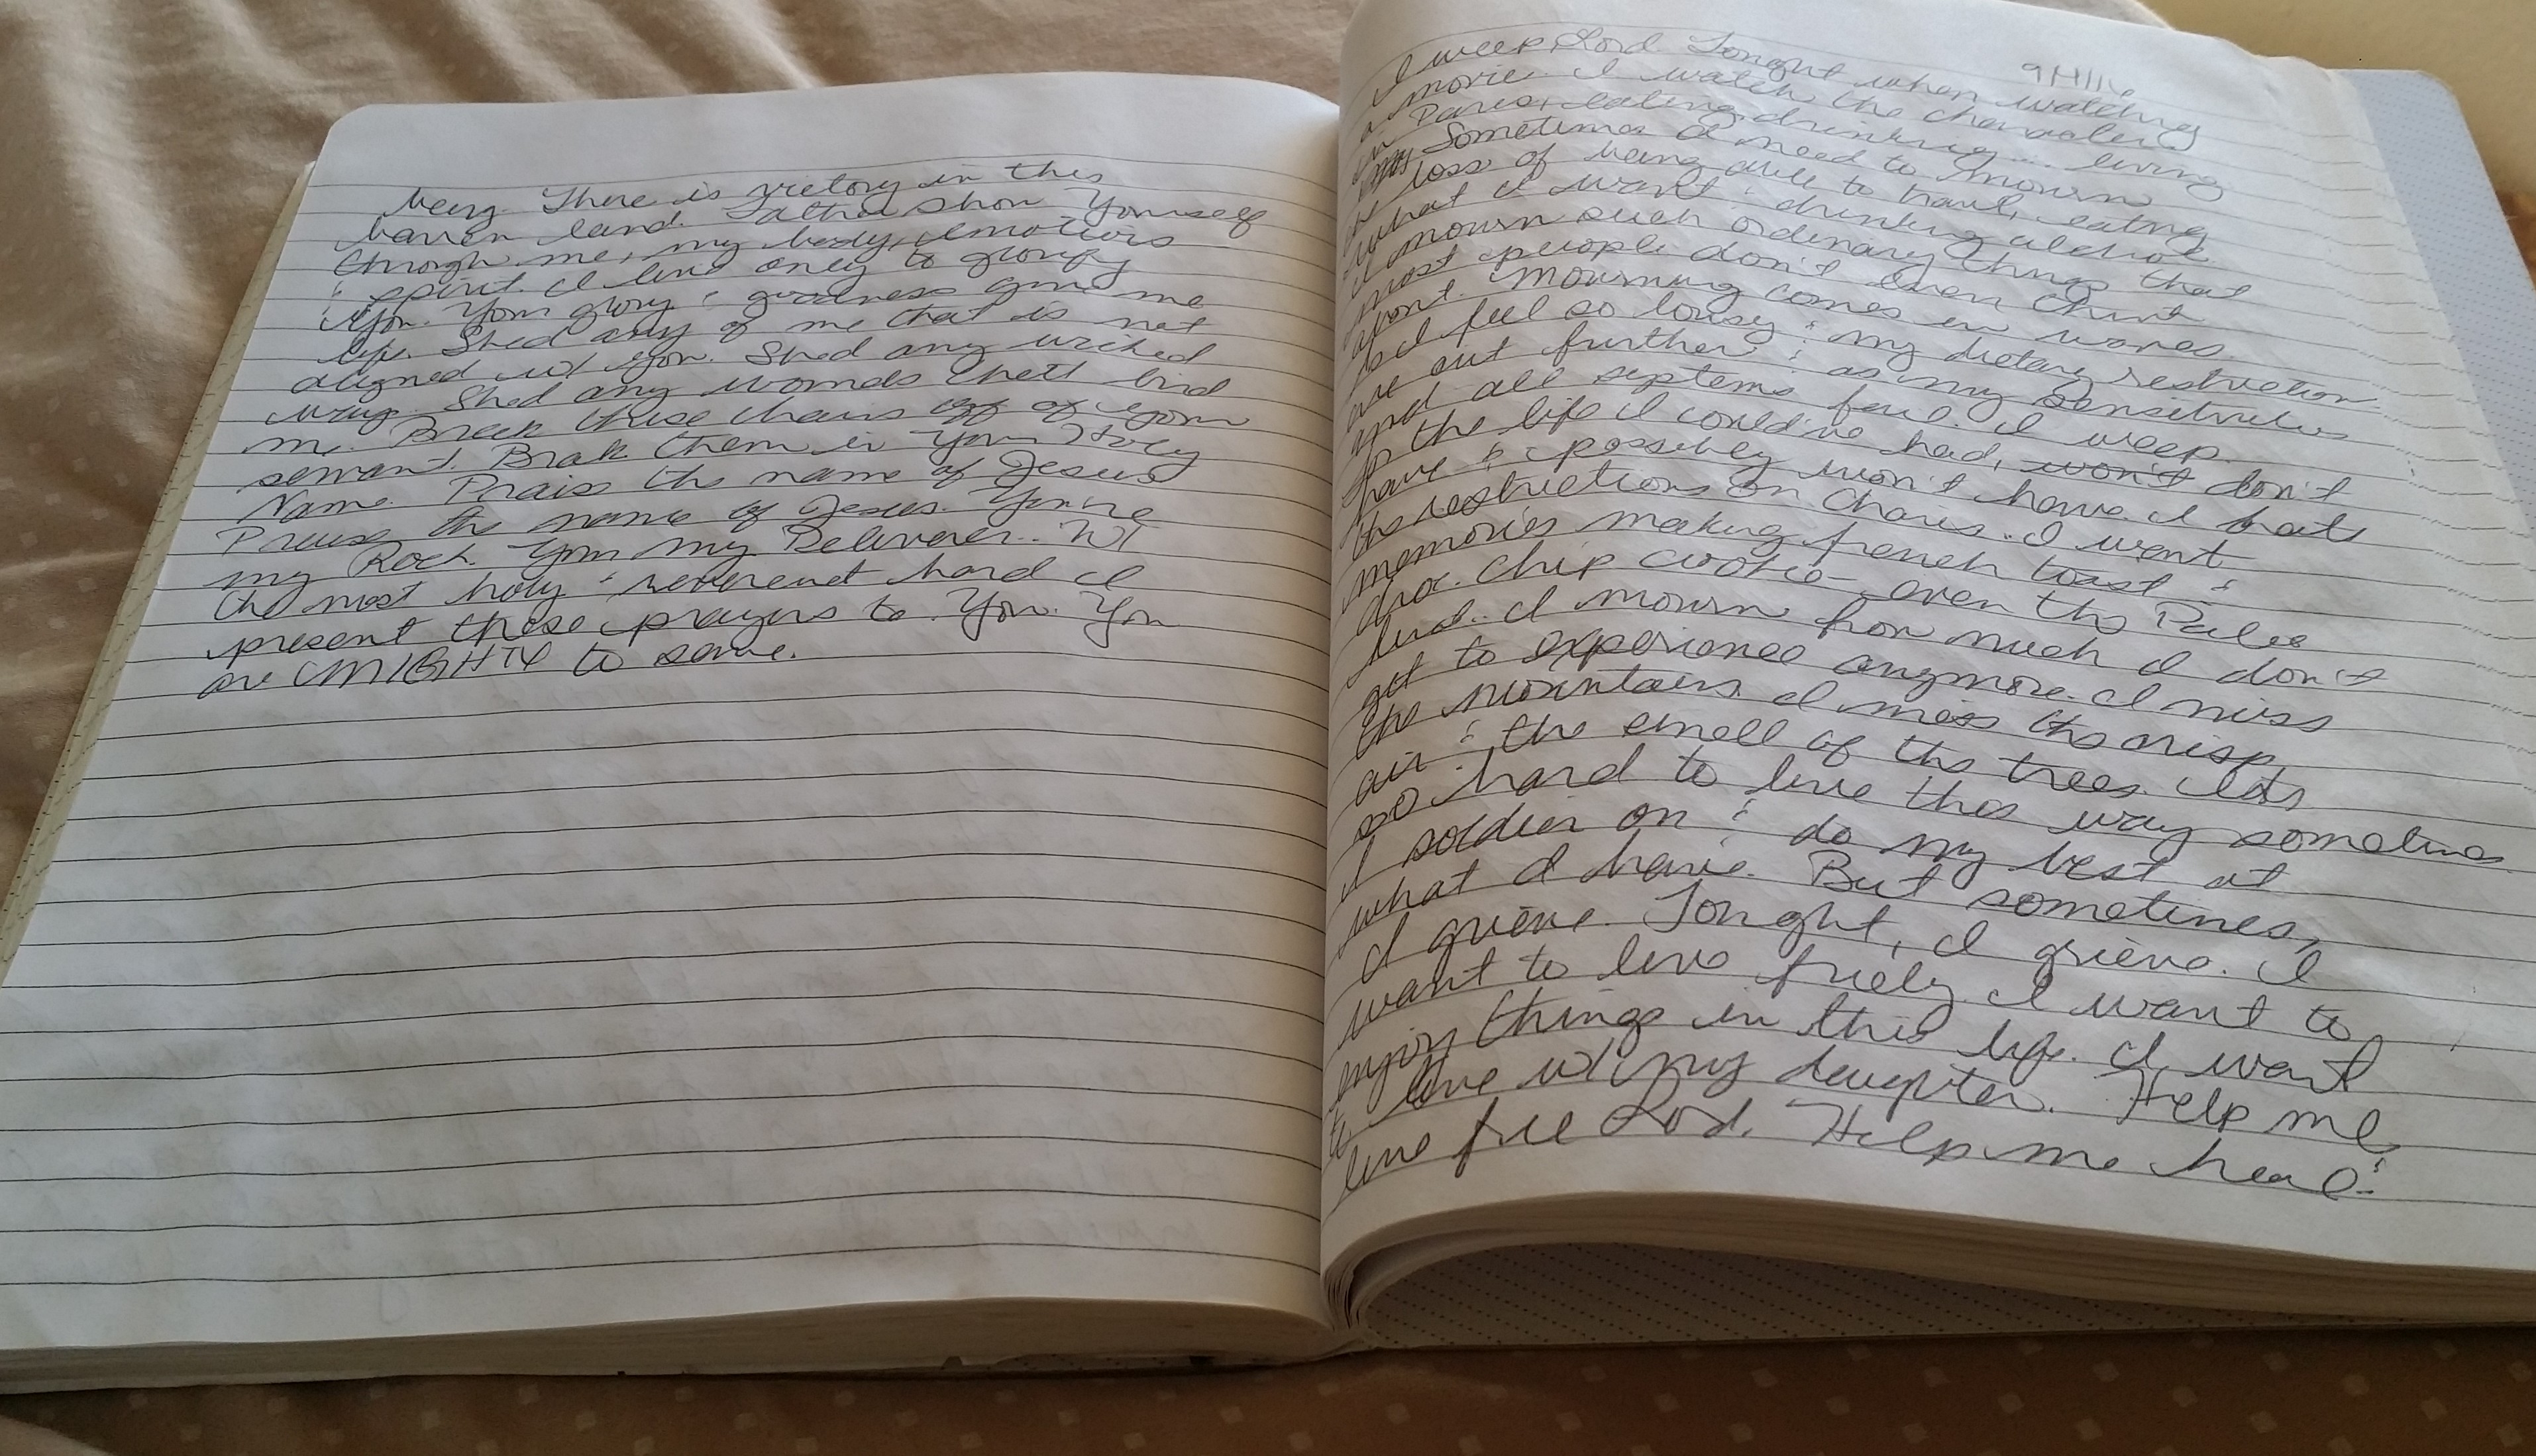 being. There is victory in this
barren land. Father show Yourself
through me, my body, emotions
& spirit. I live only to glorify
You. Your glory & goodness give me
life. Shed any of me that is not
aligned w/ You. Shed any wicked
ways. Shed any wounds that bind
me. Break these chains off of Your
servant. Break them in Your Holy
Name. Praise the name of Jesus
Praise the name of Jesus. You're
my Rock. You my Deliverer. W/
the most holy & reverent hand I
present these prayers to You. You
are MIGHTY to save.
I weep, Lord. Tonight when watching
a movie. I watch the characters
in Paris, eating, drinking... living
Sometimes I need to mourn
the loss of being able to travel, eating
what I want & drinking alcohol.
I mourn such ordinary things that
most people don't even think
about. Mourning comes in waves.
As I feel so lousy & my dietary restriction
are out further & as my sensitivities
and all systems fail. I weep
for the life I could've had, won't don't
have & possibly won't have. I hate
the restrictions on Chavis. I want
memories making french toast &
choc. chip cookie – even the Paleo
kind. I mourn how much I don't
get to experience anymore. I miss
the mountains. I miss the crisp
air & the smell of the trees. It's
so hard to live this way sometimes
I soldier on & do my best at
what I have. But sometimes,
I grieve. Tonight, I grieve. I
want to live freely. I want to
enjoy things in this life. I want
to live w/ my daughter. Help me
live free Lord. Help me heal &